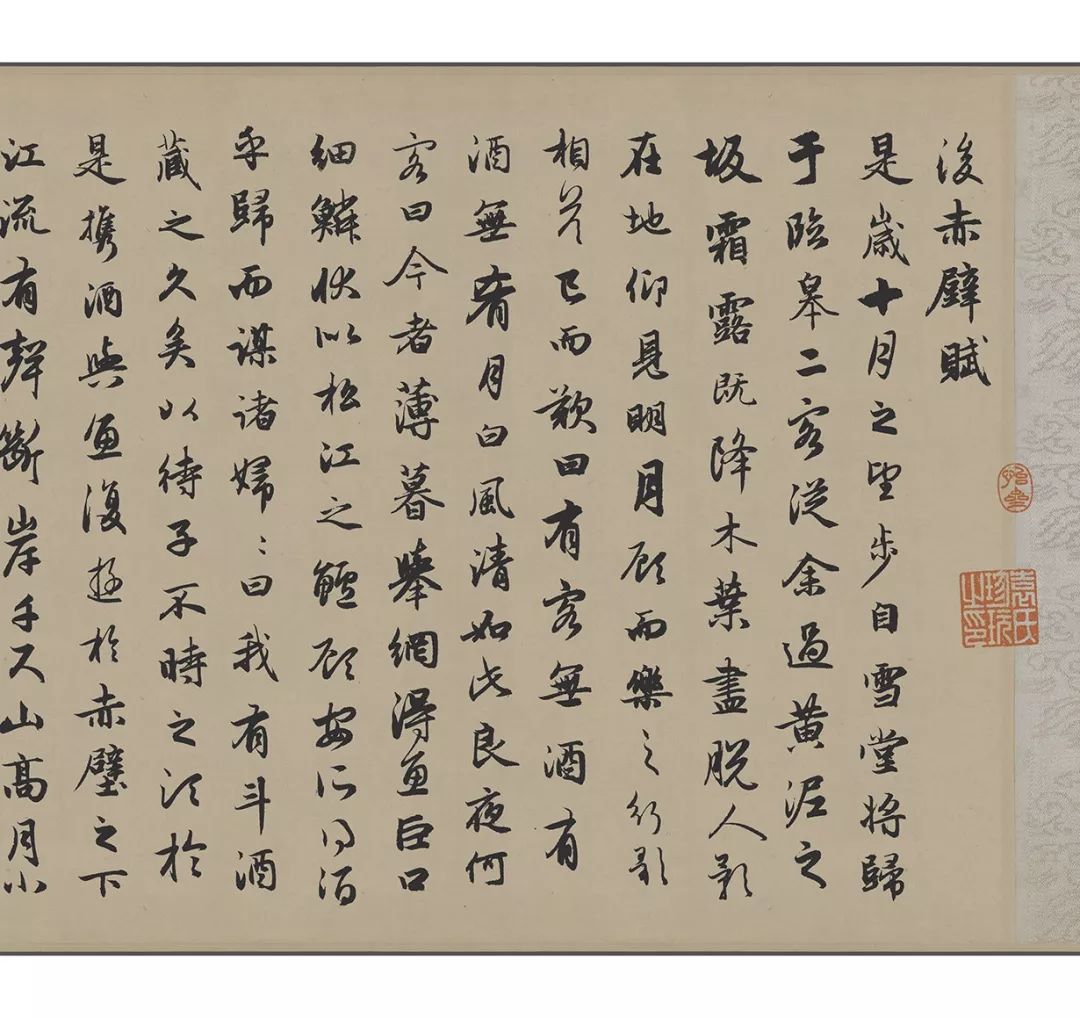 後赤壁賦
是歲十月之望步自雪堂將歸
于臨皋二客從余過黃泥之
坂霜露既降木葉盡脫人影
在地仰見明月顧而樂之行歌
相答已而歎曰有客無酒有
酒無肴月白風清如此良夜何
客曰今者薄暮舉網得魚巨口
細鱗狀似松江之鱸顧安所得酒
乎歸而謀諸婦〻曰我有斗酒
藏之久矣以待子不時之須於
是攜酒與魚復遊於赤壁之下
江流有聲斷岸千尺山高月小
袁氏
珍玩
之印